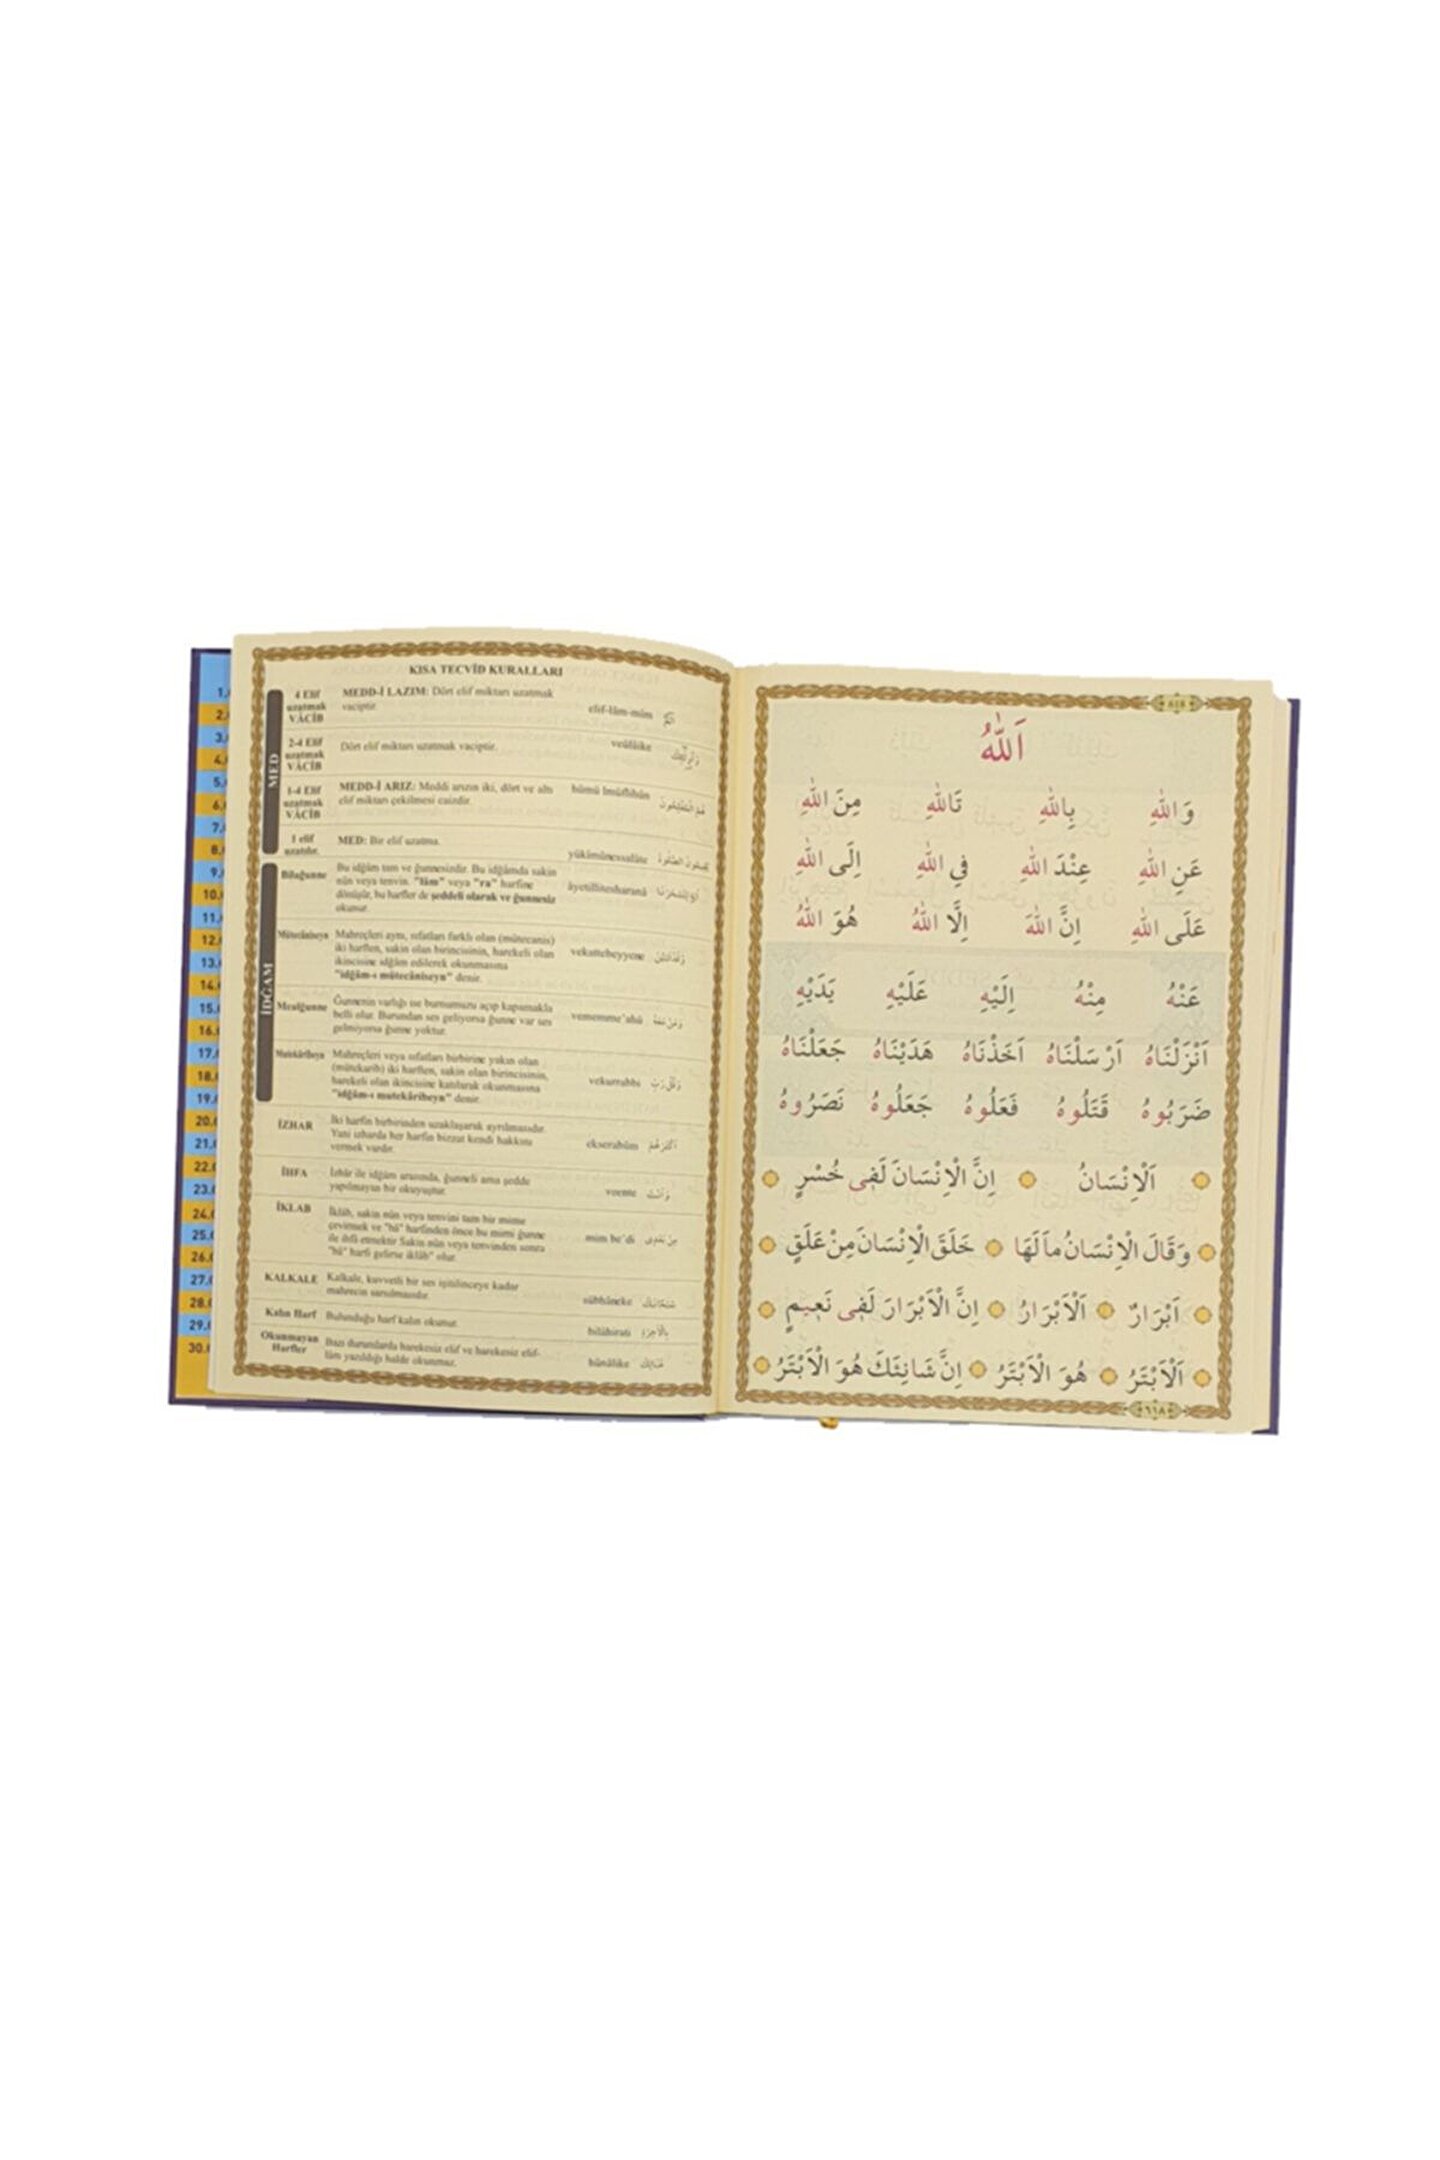 1.
2.
3.
4.
5.
6.
7.
8.
9.
10.
11.
12.
13.
14.
15.
16.
17.
18.
19.
20.
21.
22.
23.
24.
25.
26.
27.
28.
29.
30.
KISA TECVİD KURALLARI
MED
4 Elif uzatmak VÂCİB
MEDD-İ LAZIM: Dört elif miktarı uzatmak
vaciptir.
elif-lâm-mim
2-4 Elif uzatmak VÂCİB
Dört elif miktarı uzatmak vaciptir.
veülâike
1-4 Elif uzatmak VÂCİB
MEDD-İ ARIZ: Meddi arızın iki, dört ve altı
elif miktarı çekilmesi caizdir.
hümü lmüflihûn
1 elif uzatılır.
MED: Bir elif uzatma.
yükîmûnessalâte
İDĞAM
Bilağunne
Bu idğâm tam ve ğunnesizdir. Bu idğâmda sakin
nûn veya tenvin, "lâm" veya "ra" harfine
dönüşür, bu harfler de şeddeli olarak ve ğunnesiz
okunur.
Mütecâniseyn
Mahreçleri aynı, sıfatları farklı olan (mütecanis)
iki harften, sakin olan birincisinin, harekeli olan
ikincisine idğâm edilerek okunmasına
"idğâm-ı mütecâniseyn" denir.
vekattebeyyene
Mealğunne
Ğunnenin varlığı ise burnumuzu açıp kapamakla
belli olur. Burundan ses geliyorsa ğunne var ses
gelmiyorsa ğunne yoktur.
vememme'ahû
Mahreçleri veya sıfatları birbirine yakın olan
(mütekarib) iki harften, sakin olan birincisinin,
harekeli olan ikincisine katılarak okunmasına
"idğâm-ı mutekâribeyn" denir.
vekurrabbi
İZHAR
İki harfin birbirinden uzaklaşarak ayrılmasıdır.
Yani izharda her harfin bizzat kendi hakkını
vermek vardır.
ekserahüm
İHFA
İzhâr ile idğâm arasında, ğunneli ama şedde
yapılmayan bir okuyuştur.
veente
İKLAB
İklâb, sakin nûn veya tenvini tam bir mime
çevirmek ve "bâ" harfinden önce bu mimi ğunne
ile ihfâ etmektir. Sakin nûn veya tenvinden sonra
"bâ" harfi gelirse iklâb" olur.
mim be'di
KALKALE
Kalkale, kuvvetli bir ses işitilinceye kadar
mahrecin sarsılmasıdır.
sübhâneke
Kalın Harf
Bulunduğu harf kalın okunur.
bilâhirati
Okunmayan Harfler
Bazı durumlarda harekesiz elif ve harekesiz elif-
lâm yazıldığı halde okunmaz.
hünâlike
اَللّٰهُ
وَاللّٰهِ بِاللّٰهِ تَاللّٰهِ مِنَ اللّٰهِ
عَنِ اللّٰهِ عِنْدَ اللّٰهِ فِي اللّٰهِ اِلَى اللّٰهِ
عَلَى اللّٰهِ اِنَّ اللّٰهَ اِلَّا اللّٰهُ هُوَ اللّٰهُ
عَنْهُ مِنْهُ اِلَيْهِ عَلَيْهِ يَدَيْهِ
اَنْزَلْنَاهُ اَرْسَلْنَاهُ اَخَذْنَاهُ هَدَيْنَاهُ جَعَلْنَاهُ
ضَرَبُوهُ قَتَلُوهُ فَعَلُوهُ جَعَلُوهُ نَصَرُوهُ
اَلْاِنْسَانُ اِنَّ الْاِنْسَانَ لَفِي خُسْرٍ
وَقَالَ الْاِنْسَانُ مَالَهَا خَلَقَ الْاِنْسَانَ مِنْ عَلَقٍ
اَبْرَارٌ اَلْاَبْرَارُ اِنَّ الْاَبْرَارَ لَفِي نَعِيمٍ
اَلْاَبْتَرُ هُوَ الْاَبْتَرُ اِنَّ شَانِئَكَ هُوَ الْاَبْتَرُ
٦١٨